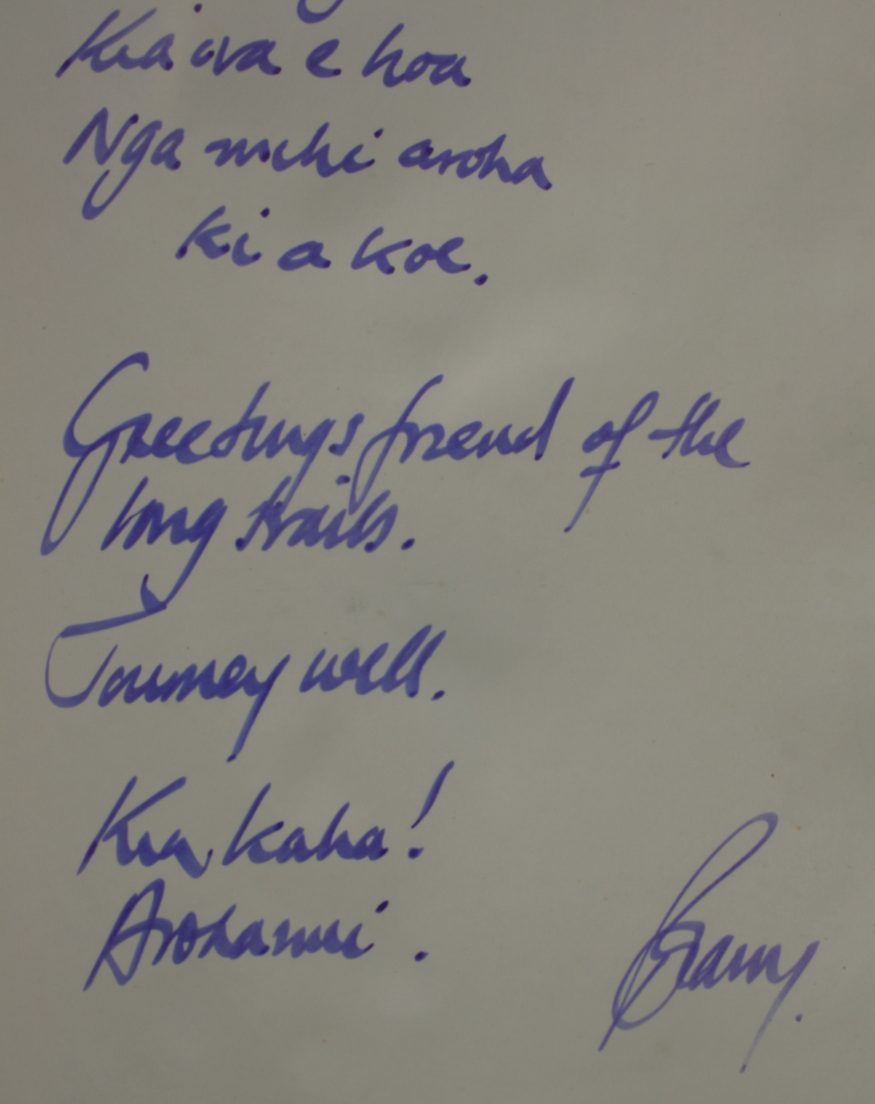 Kia ora e hoa
Nga mihi aroha
ki a koe.
Greetings friend of the
long trails.
Journey well.
Kia kaha!
Arohanui.
Barry.